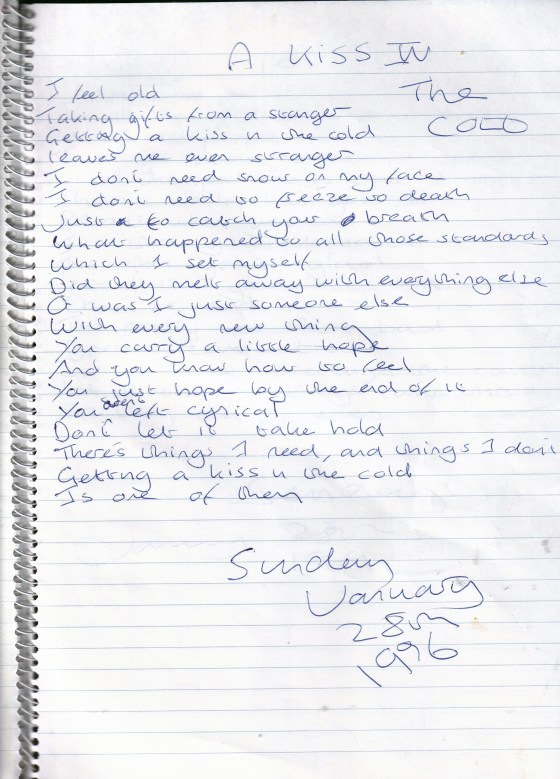 A KISS IN
The
COLD
I feel old
Taking gifts from a stranger
Getting a kiss in the cold
Leaves me even stranger
I don't need snow on my face
I don't need to freeze to death
Just to catch your breath
What happened to all those standards
Which I set myself
Did they melt away with everything else
Or was I just someone else
With every new thing
You carry a little hope
And you know how to feel
You just hope by the end of it
You aren't left cynical
Don't let it take hold
There's things I need, and things I don't
Getting a kiss in the cold
Is one of them
Sunday
January
28th
1996